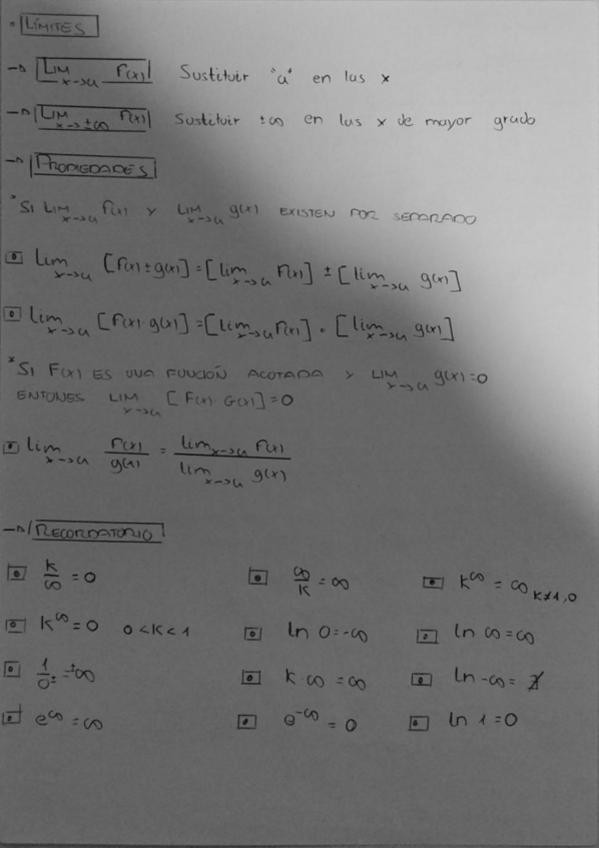 • LÍMITES
→ Lim x→a F(x) Sustituir "a" en las x
→ Lim x→±∞ F(x) Sustituir ±∞ en las x de mayor grado
→ PROPIEDADES
* SI LIM x→a F(x) Y LIM x→a g(x) EXISTEN POR SEPARADO
lim x→a [F(x) ± g(x)] = [lim x→a F(x)] ± [lim x→a g(x)]
lim x→a [F(x) · g(x)] = [lim x→a F(x)] · [lim x→a g(x)]
* SI F(x) ES UNA FUNCIÓN ACOTADA Y LIM x→a g(x)=0
ENTONES LIM x→a [F(x) · G(x)]=0
lim x→a F(x)/g(x) = lim x→a F(x) / lim x→a g(x)
→ RECORDATORIO
k/∞ = 0 ∞/k = ∞ k^∞ = ∞ k≠1,0
k^∞ = 0 0<k<1 ln 0 = -∞ ln ∞ = ∞
1/0± = ±∞ k·∞ = ∞ ln -∞ = ∄
e^∞ = ∞ e^-∞ = 0 ln 1 = 0